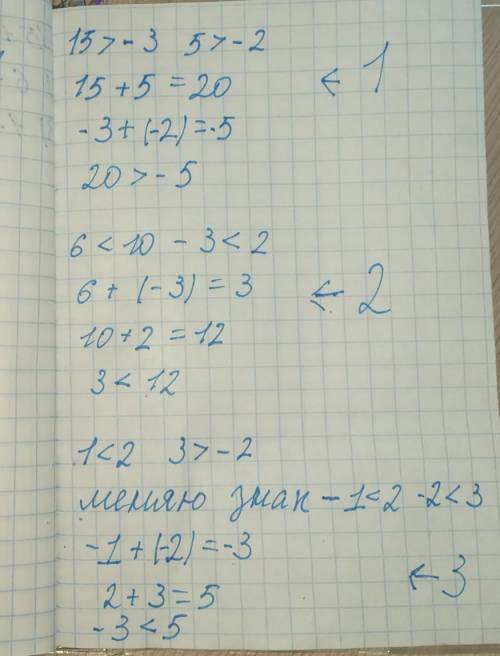 15 > - 3 5 > - 2
15 + 5 = 20 ← 1
- 3 + (-2) = -5
20 > - 5
6 < 10 - 3 < 2
6 + (-3) = 3 ← 2
10 + 2 = 12
3 < 12
1 < 2 3 > - 2
меняю знак - 1 < 2 -2 < 3
-1 + (-2) = -3
2 + 3 = 5 ← 3
- 3 < 5